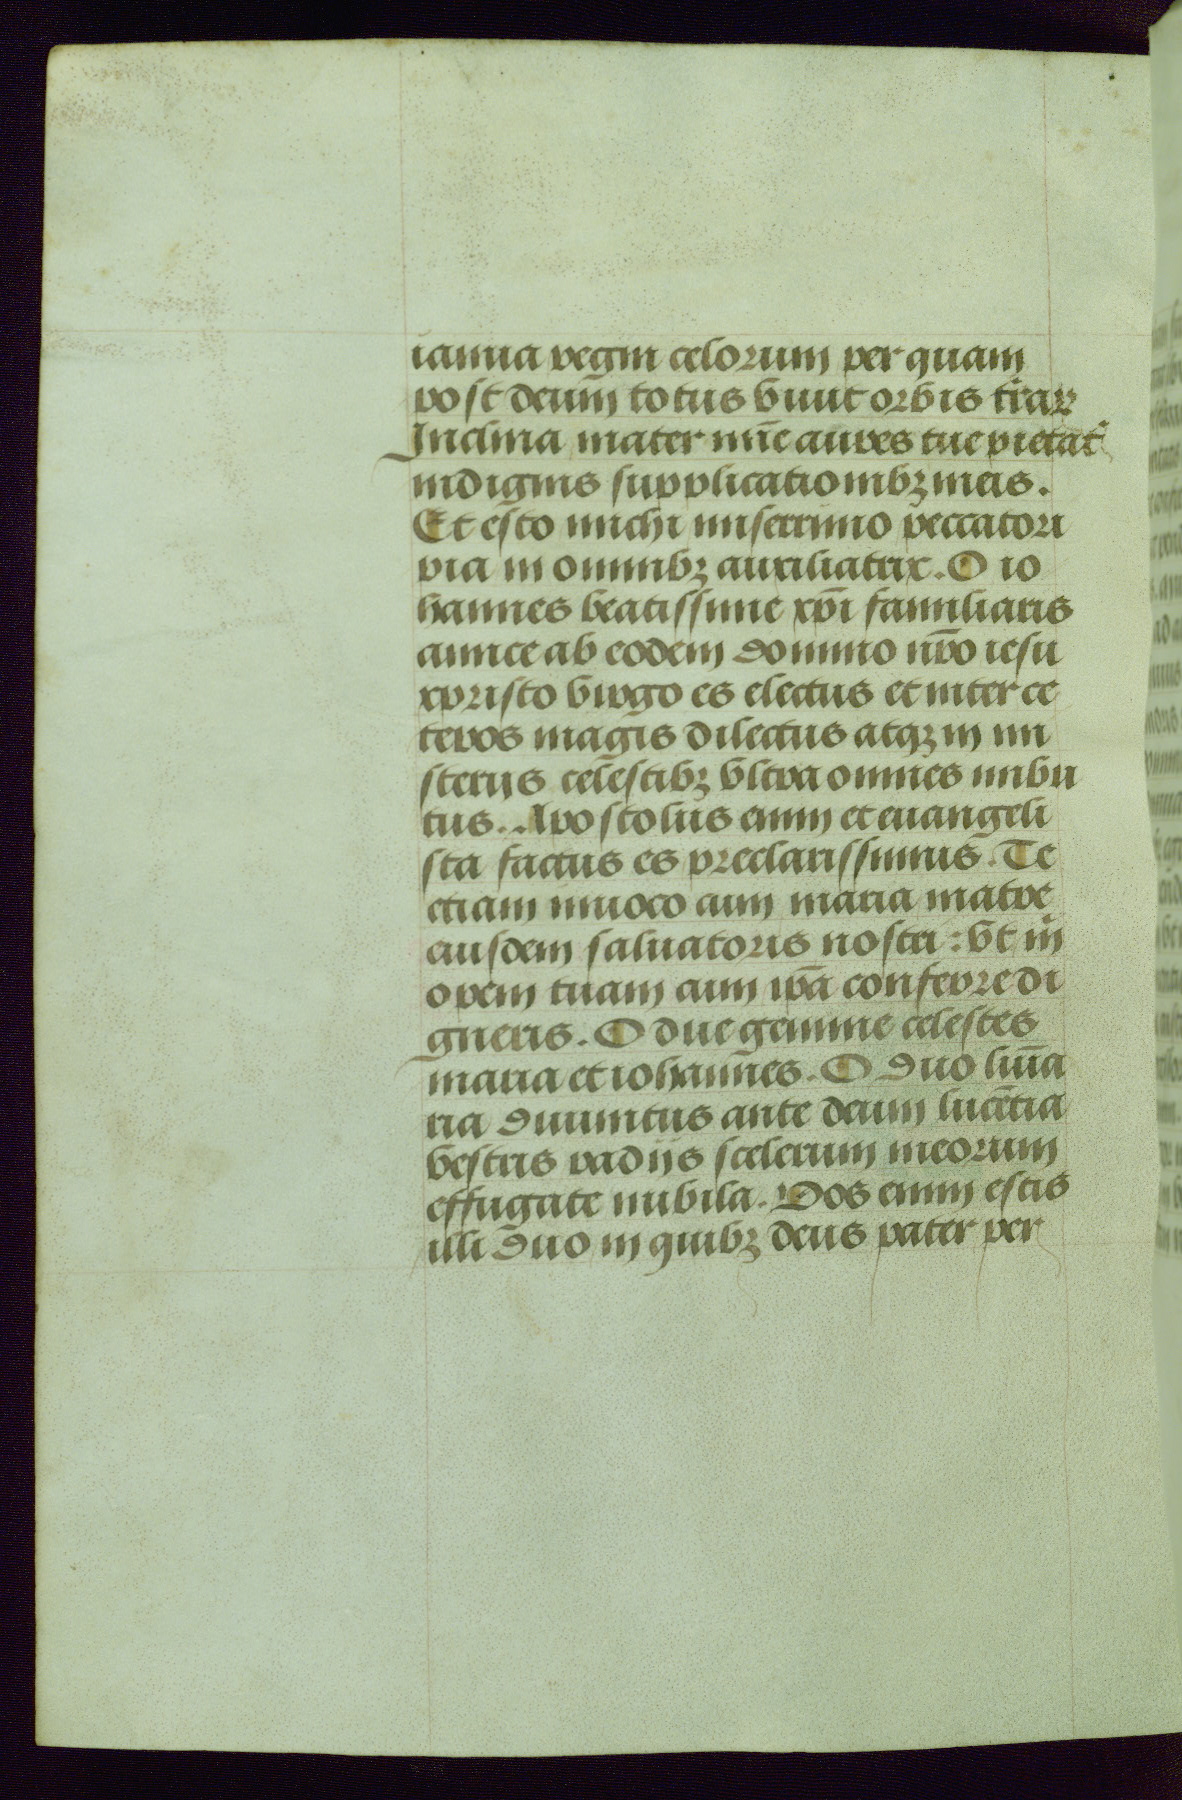 ianua regni celorum per quam
post deum totus viuit orbis trar͞
Inclina mater mīe aures tue pietat͛
indignis supplicationibꝫ meis.
Et esto michi miserrimo peccatori
pia in omnibꝫ auxiliatrix. O io
hannes beatissime xp̄i familiaris
amice ab eodem domino nr̄o iesu
xpristo virgo es electus et inter ce
teros magis dilectus atqꝫ in mi
sterijs celestibꝫ vltra omnes imbu
tus. Apostolus enim et euangeli
sta factus es preclarissimus. Te
etiam inuoco cum maria matre
eiusdem saluatoris nostri: vt m͛
opem tuam cum ip̄a conferre di
gneris. O due gemme celestes
maria et iohannes. O duo lum̄a
ria diuinitus ante deum lucētia
vestris radijs scelerum meorum
effugate nubila. Vos enim estis
illi duo in quibꝫ deus pater per